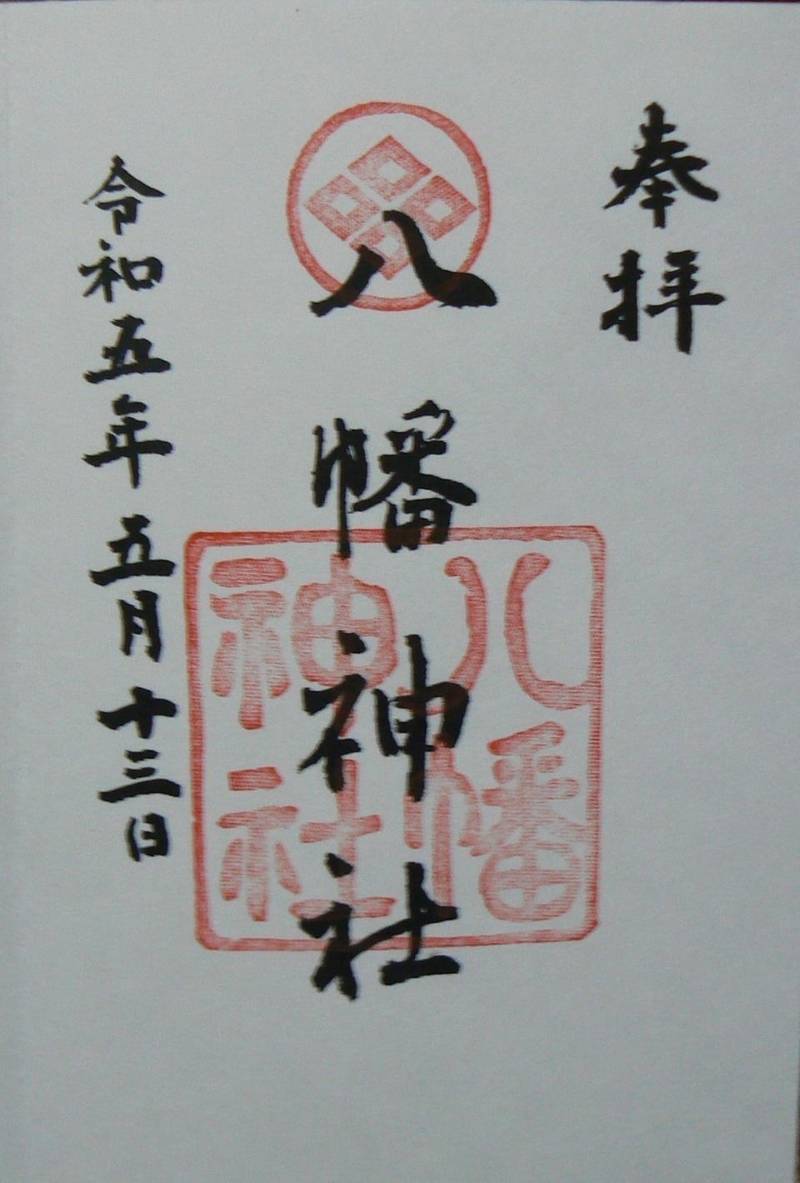 奉拝
八幡神社
八幡
神社
令和五年五月十三日